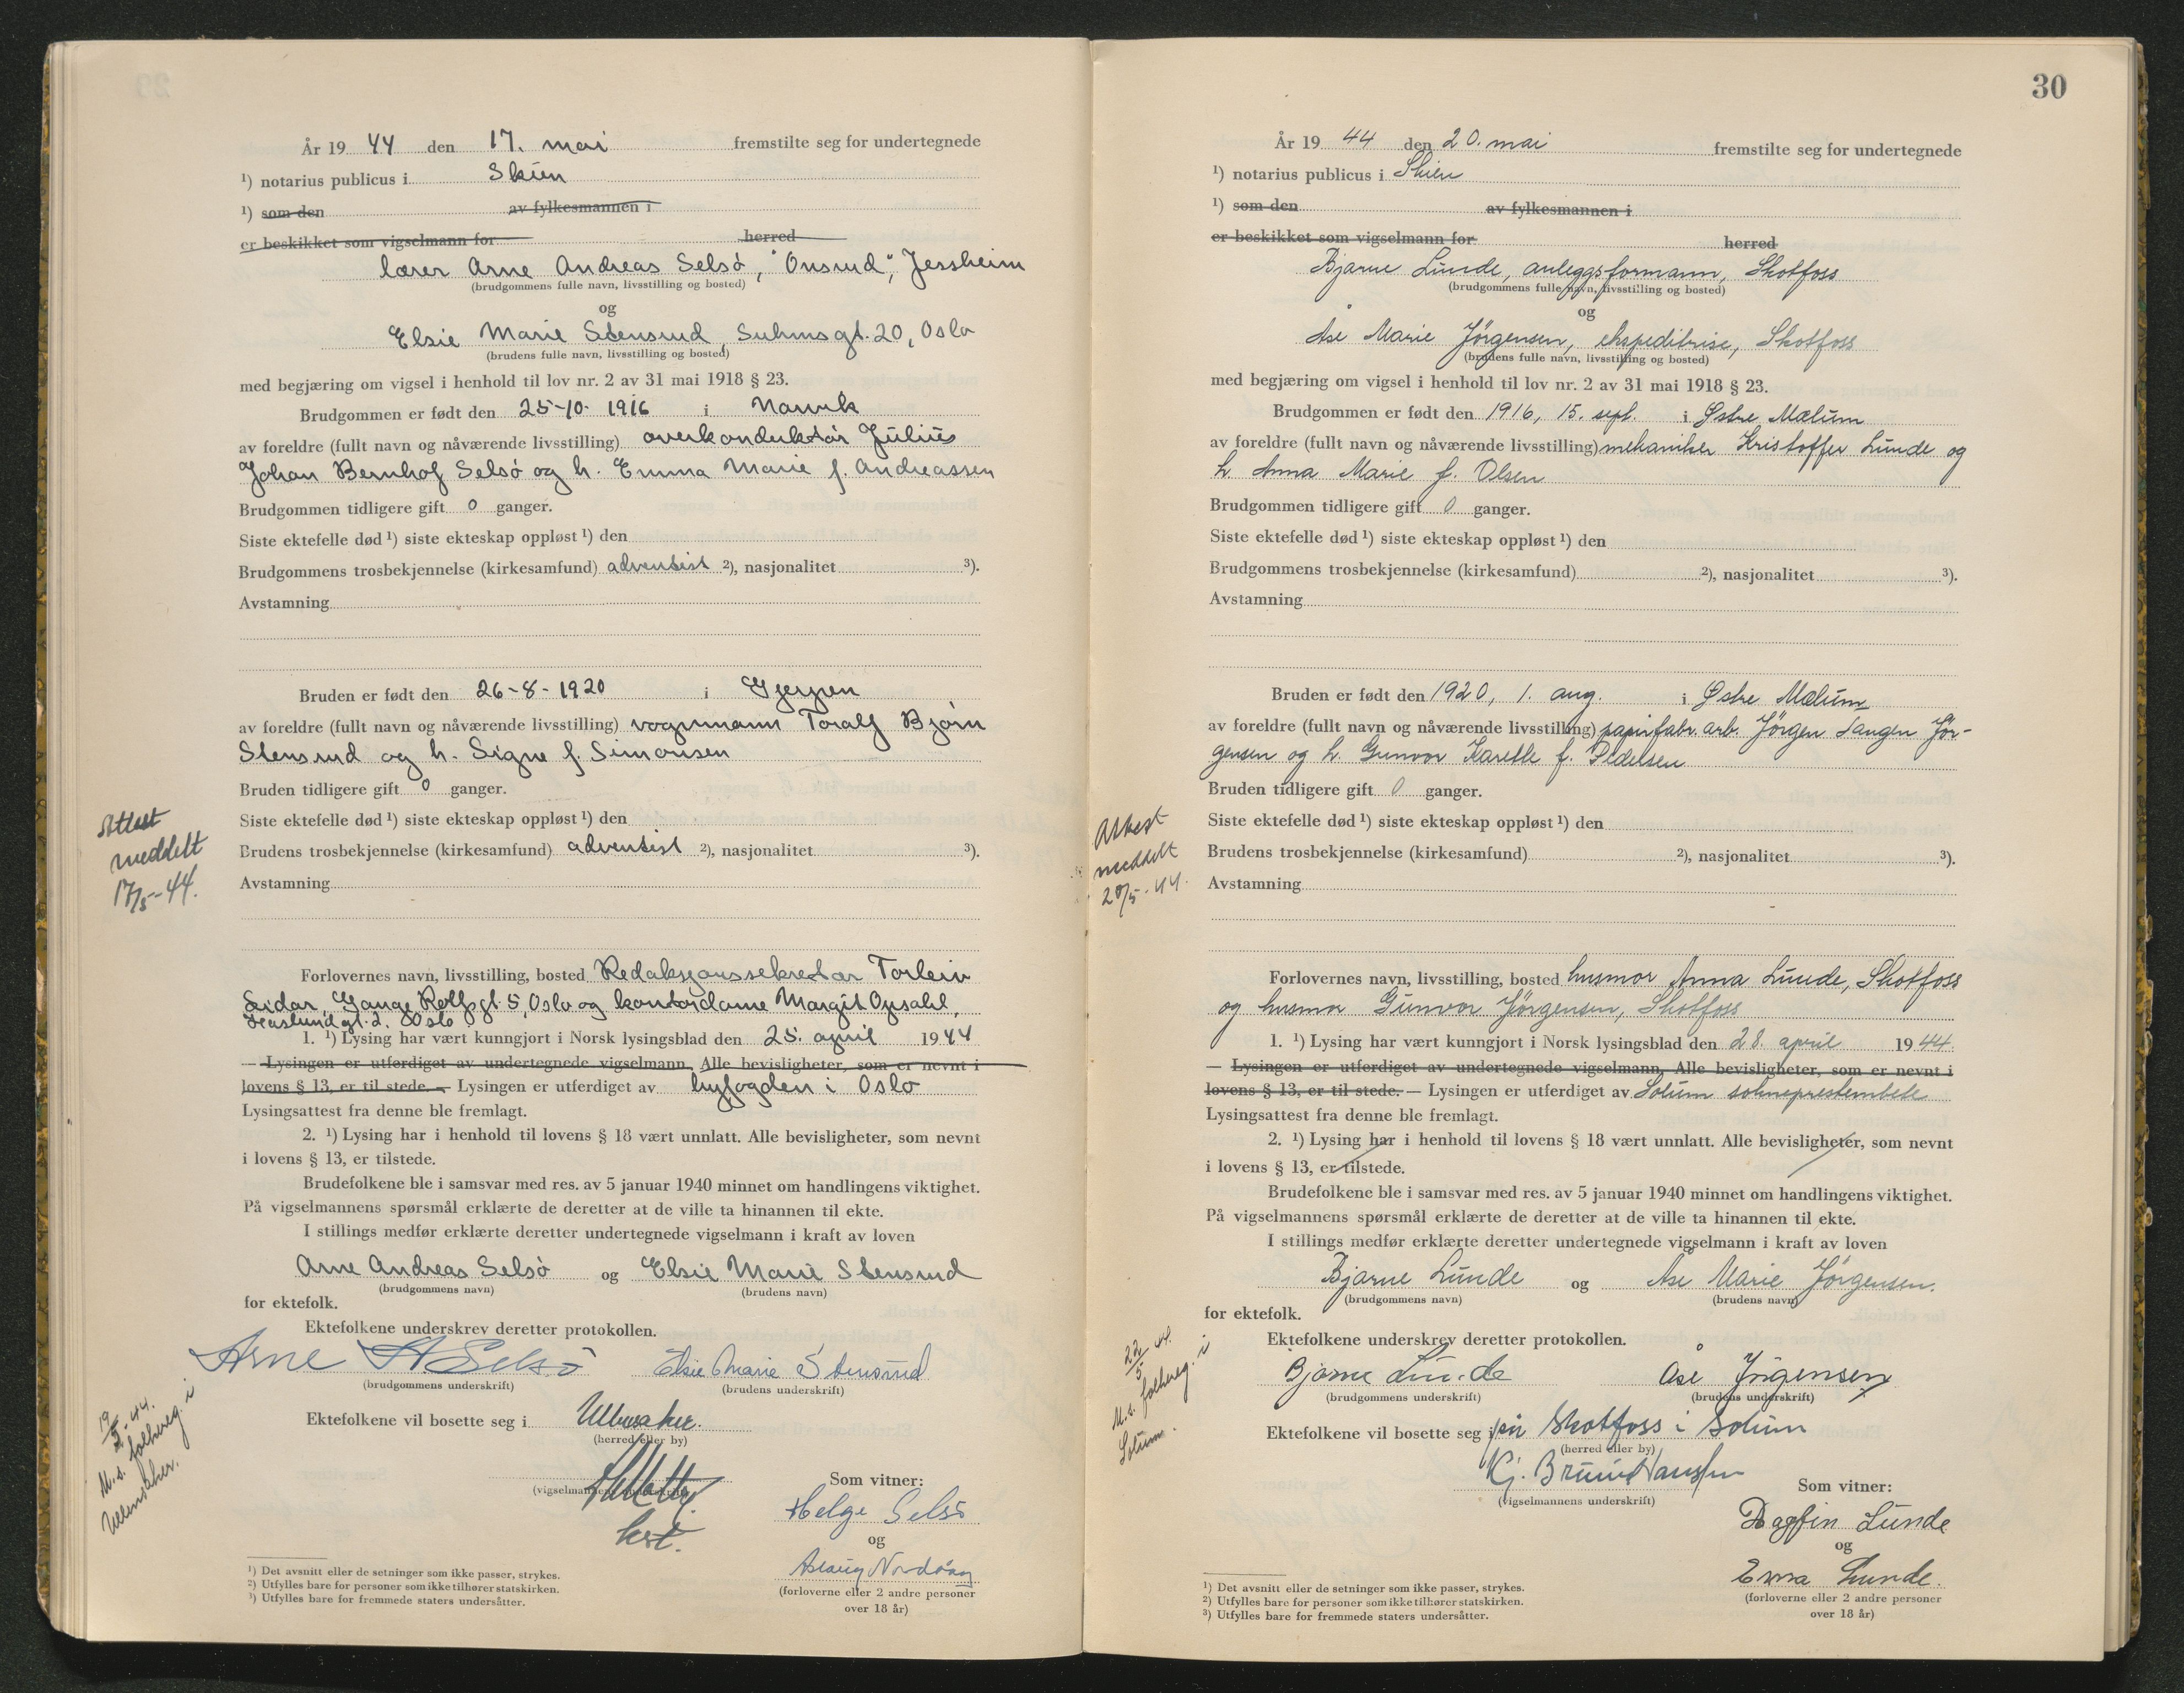 År 19 44 den 17. mai fremstilte seg for undertegnede
¹) notarius publicus i Skien
¹) som den av fylkesmannen i
er beskikket som vigselmann for herred
lærer Arne Andreas Selsö, "Onsrud", Jessheim
(brudgommens fulle navn, livsstilling og bosted)
og
Elsie Marie Stensrud, Suhmsgt. 20, Oslo
(brudens fulle navn, livsstilling og bosted)
med begjæring om vigsel i henhold til lov nr. 2 av 31 mai 1918 § 23.
Brudgommen er født den 25-10-1916 i Narvik
av foreldre (fullt navn og nåværende livsstilling) overkonduktör Julius
Johan Bernhof Selsö og h. Emma Marie f. Andreassen
Brudgommen tidligere gift 0 ganger.
Siste ektefelle død ¹) siste ekteskap oppløst ¹) den
Brudgommens trosbekjennelse (kirkesamfund) adventist ²), nasjonalitet ³).
Avstamning
Bruden er født den 26-8-1920 i Gjerpen
av foreldre (fullt navn og nåværende livsstilling) vognmann Toralf Björn
Stensrud og h. Signe f. Simonsen
Bruden tidligere gift 0 ganger.
Siste ektefelle død ¹) siste ekteskap oppløst ¹) den
Brudens trosbekjennelse (kirkesamfund) adventist ²), nasjonalitet ³).
Avstamning
Attest
meddelt
17/5-44.
Forlovernes navn, livsstilling, bosted Redaksjonssekretær Torleiv
Gange Rolfsgt. 5, Oslo og kontordame Margit Opsahl,
Haslundgt. 2. Oslo
1. ¹) Lysing har vært kunngjort i Norsk lysingsblad den 25. april 1944
— Lysingen er utferdiget av undertegnede vigselmann. Alle bevisligheter, som er nevnt i
lovens § 13, er til stede. — Lysingen er utferdiget av byfogden i Oslo
Lysingsattest fra denne ble fremlagt.
2. ¹) Lysing har i henhold til lovens § 18 vært unnlatt. Alle bevisligheter, som nevnt
i lovens § 13, er tilstede.
Brudefolkene ble i samsvar med res. av 5 januar 1940 minnet om handlingens viktighet.
På vigselmannens spørsmål erklærte de deretter at de ville ta hinannen til ekte.
I stillings medfør erklærte deretter undertegnede vigselmann i kraft av loven
Arne Andreas Selsö og Elsie Marie Stensrud
(brudgommens navn) (brudens navn)
for ektefolk.
Ektefolkene underskrev deretter protokollen.
Arne A Selsö Elsie Marie Stensrud
(brudgommens underskrift) (brudens underskrift)
Ektefolkene vil bosette seg i Ullensaker.
(herred eller by)
19/5-44.
M.s. folkereg. i
Ullensaker.
(vigselmannens underskrift)
Som vitner:
Helge Selsö
og
Aslaug Nordöag
(forloverne eller 2 andre personer
over 18 år)
¹) Det avsnitt eller de setninger som ikke passer, strykes.
²) Utfylles bare for personer som ikke tilhører statskirken.
³) Utfylles bare for fremmede staters undersåtter.
30
År 19 44 den 20. mai fremstilte seg for undertegnede
¹) notarius publicus i Skien
¹) som den av fylkesmannen i
er beskikket som vigselmann for herred
Bjarne Lunde, anleggsformann, Skotfoss
(brudgommens fulle navn, livsstilling og bosted)
og
Åse Marie Jörgensen, ekspeditrise, Skotfoss
(brudens fulle navn, livsstilling og bosted)
med begjæring om vigsel i henhold til lov nr. 2 av 31 mai 1918 § 23.
Brudgommen er født den 1916, 15. sept. i Østre Mælum
av foreldre (fullt navn og nåværende livsstilling) mekaniker Kristoffer Lunde og
h. Anna Marie f. Olsen
Brudgommen tidligere gift 0 ganger.
Siste ektefelle død ¹) siste ekteskap oppløst ¹) den
Brudgommens trosbekjennelse (kirkesamfund) ²), nasjonalitet ³).
Avstamning
Bruden er født den 1920, 1. aug. i Østre Mælum
av foreldre (fullt navn og nåværende livsstilling) papirfabr. arb. Jörgen Langen Jör-
gensen og h. Gunvor Karette f. Pedersen
Bruden tidligere gift 0 ganger.
Siste ektefelle død ¹) siste ekteskap oppløst ¹) den
Brudens trosbekjennelse (kirkesamfund) ²), nasjonalitet ³).
Avstamning
Attest
meddelt
20/5-44.
Forlovernes navn, livsstilling, bosted husmor Anna Lunde, Skotfoss
og husmor Gunvor Jörgensen, Skotfoss
1. ¹) Lysing har vært kunngjort i Norsk lysingsblad den 28. april 1944.
— Lysingen er utferdiget av undertegnede vigselmann, Alle bevisligheter, som er nevnt i
lovens § 13, er til stede. — Lysingen er utferdiget av Solum sokneprestembete
Lysingsattest fra denne ble fremlagt.
2. ¹) Lysing har i henhold til lovens § 18 vært unnlatt. Alle bevisligheter, som nevnt
i lovens § 13, er tilstede.
Brudefolkene ble i samsvar med res. av 5 januar 1940 minnet om handlingens viktighet.
På vigselmannens spørsmål erklærte de deretter at de ville ta hinannen til ekte.
I stillings medfør erklærte deretter undertegnede vigselmann i kraft av loven
Bjarne Lunde og Åse Marie Jörgensen.
(brudgommens navn) (brudens navn)
for ektefolk.
Ektefolkene underskrev deretter protokollen.
Bjarne Lunde Åse Jörgensen
(brudgommens underskrift) (brudens underskrift)
Ektefolkene vil bosette seg i på Skotfoss i Solum
(herred eller by)
22/5 44.
M.s. folkereg. i
Solum.
Kj. Bruun Hanssen
(vigselmannens underskrift)
Som vitner:
Dagfin Lunde
og
Erna Lunde.
(forloverne eller 2 andre personer
over 18 år)
¹) Det avsnitt eller de setninger som ikke passer, strykes.
²) Utfylles bare for personer som ikke tilhører statskirken.
³) Utfylles bare for fremmede staters undersåtter.